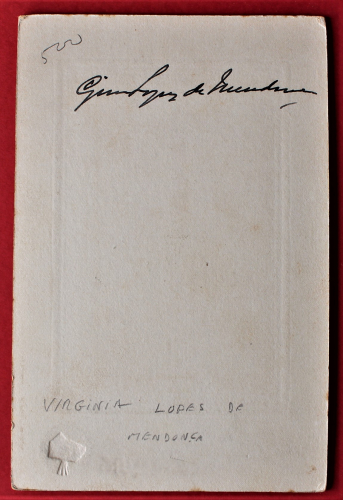 500
Lopes de Mendonça
VIRGINIA LOPES DE
MENDONÇA